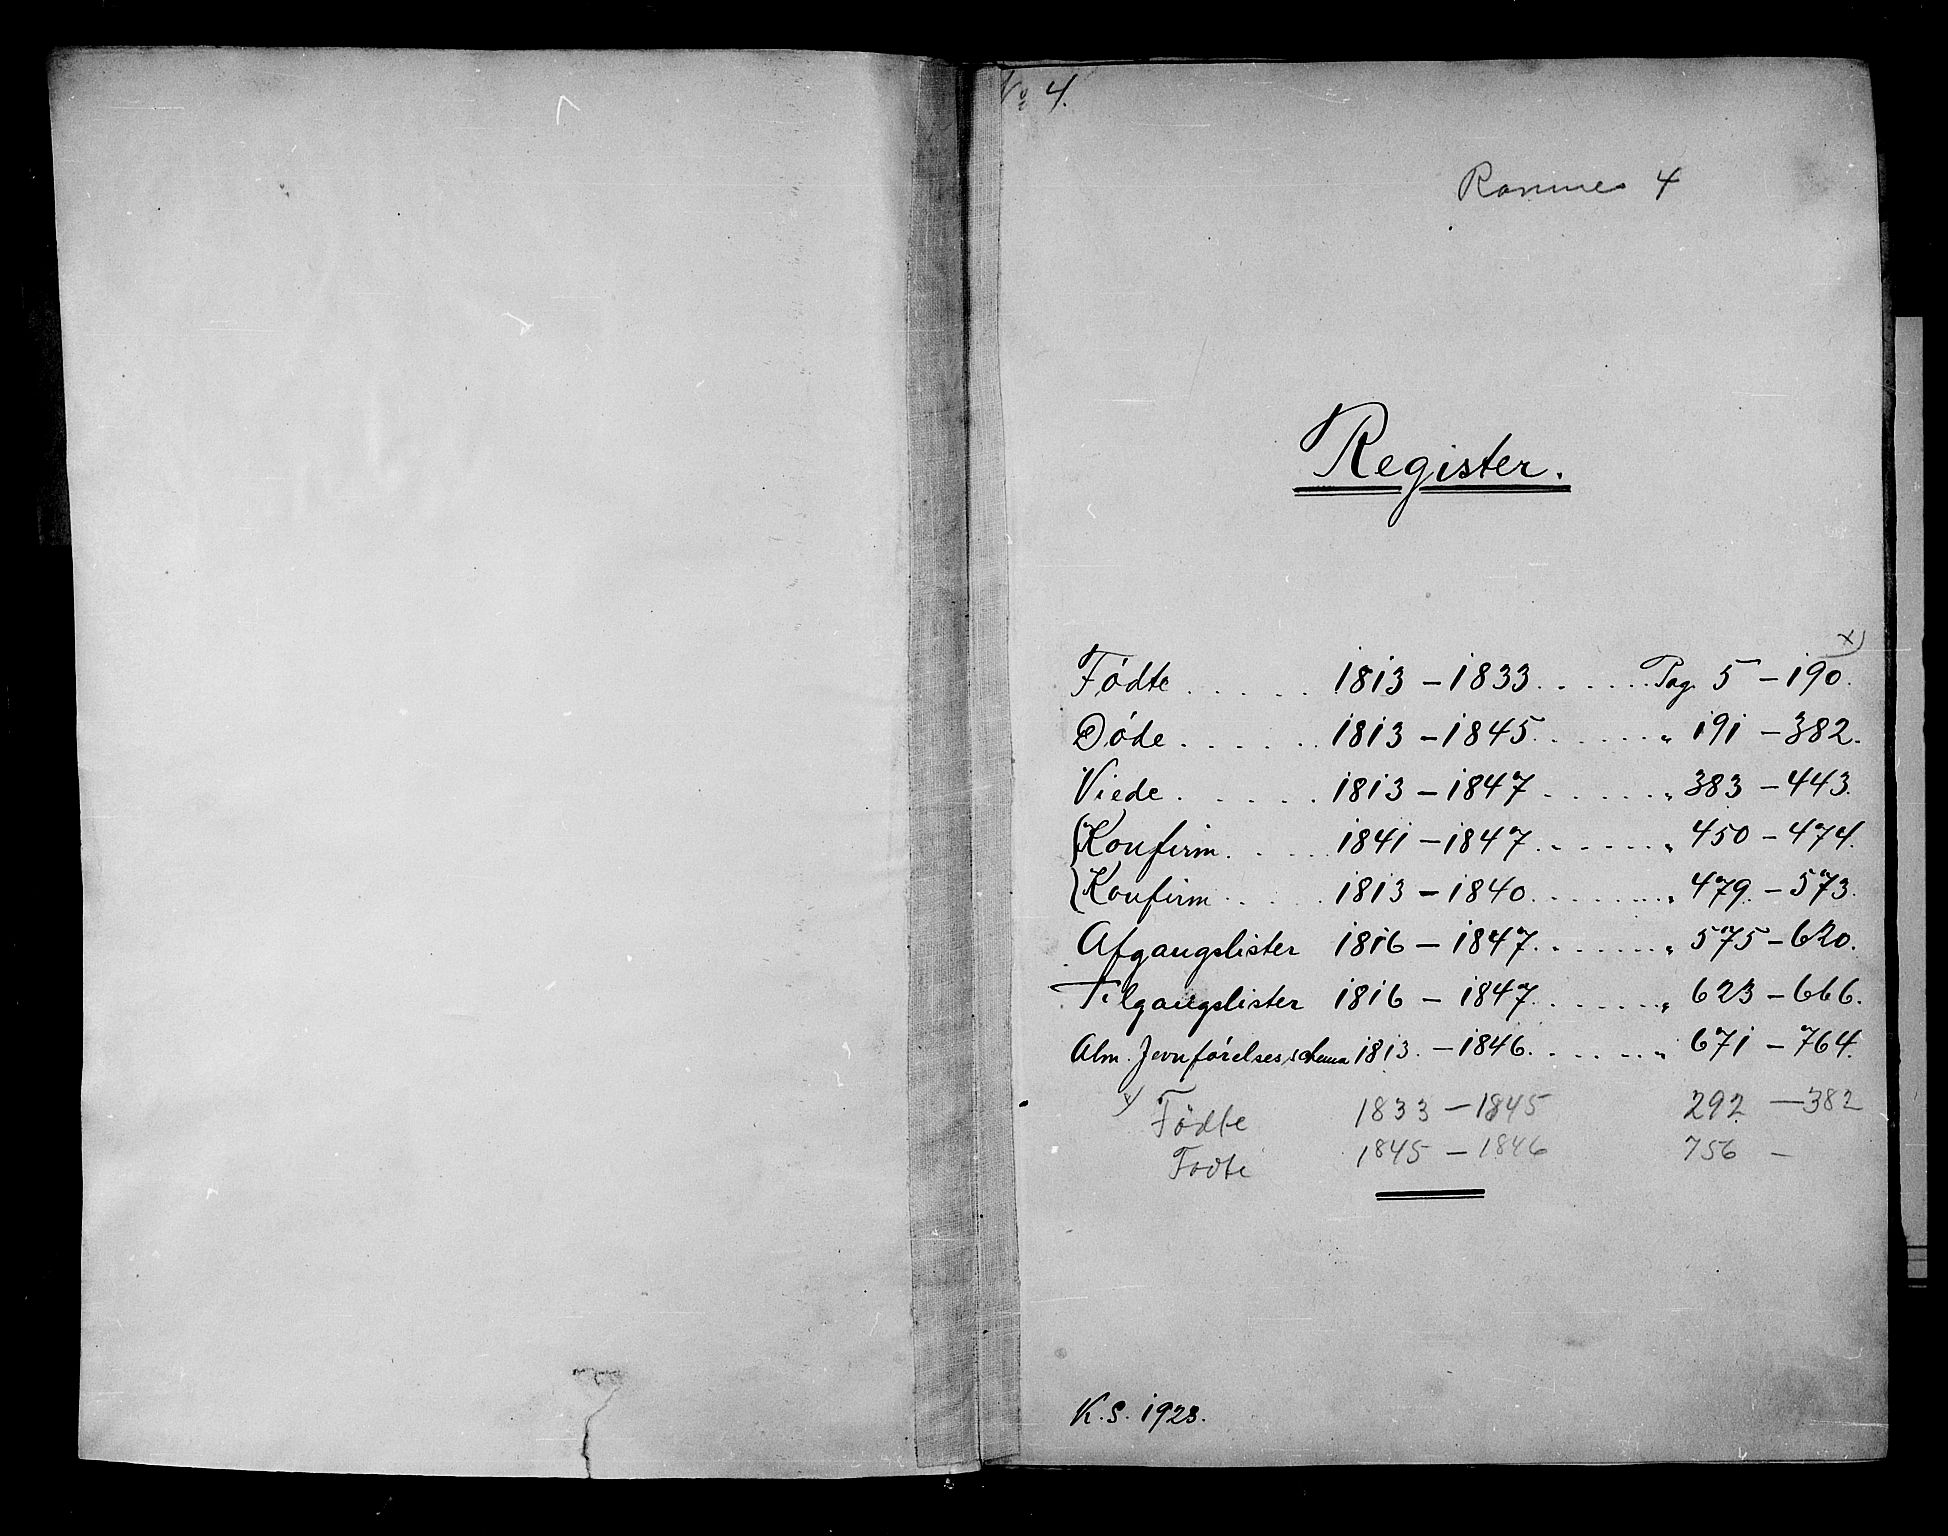 No 4.
Ramnes 4
Register.
x)
Födte . . . . . 1813 – 1833 . . . . . Pag. 5 – 190.
Döde . . . . . 1813 – 1845 . . . . . „ 191 – 382.
Viede . . . . . 1813 – 1847 . . . . . „ 383 – 443.
{Konfirm. . . . . 1841 – 1847 . . . . . „ 450 – 474.
{Konfirm . . . . . 1813 – 1840 . . . . . „ 479. – 573.
Afgangslister 1816 – 1847 . . . . . „ 575 – 620.
Tilgangslister 1816 – 1847 . . . . . „ 623 – 666.
Alm. Jevnförelsesschema 1813. – 1846. . . . . . „ 671 – 764.
x) Födte 1833 – 1845 292 – 382
Födte 1845 – 1846 756 –
K.S. 1923.